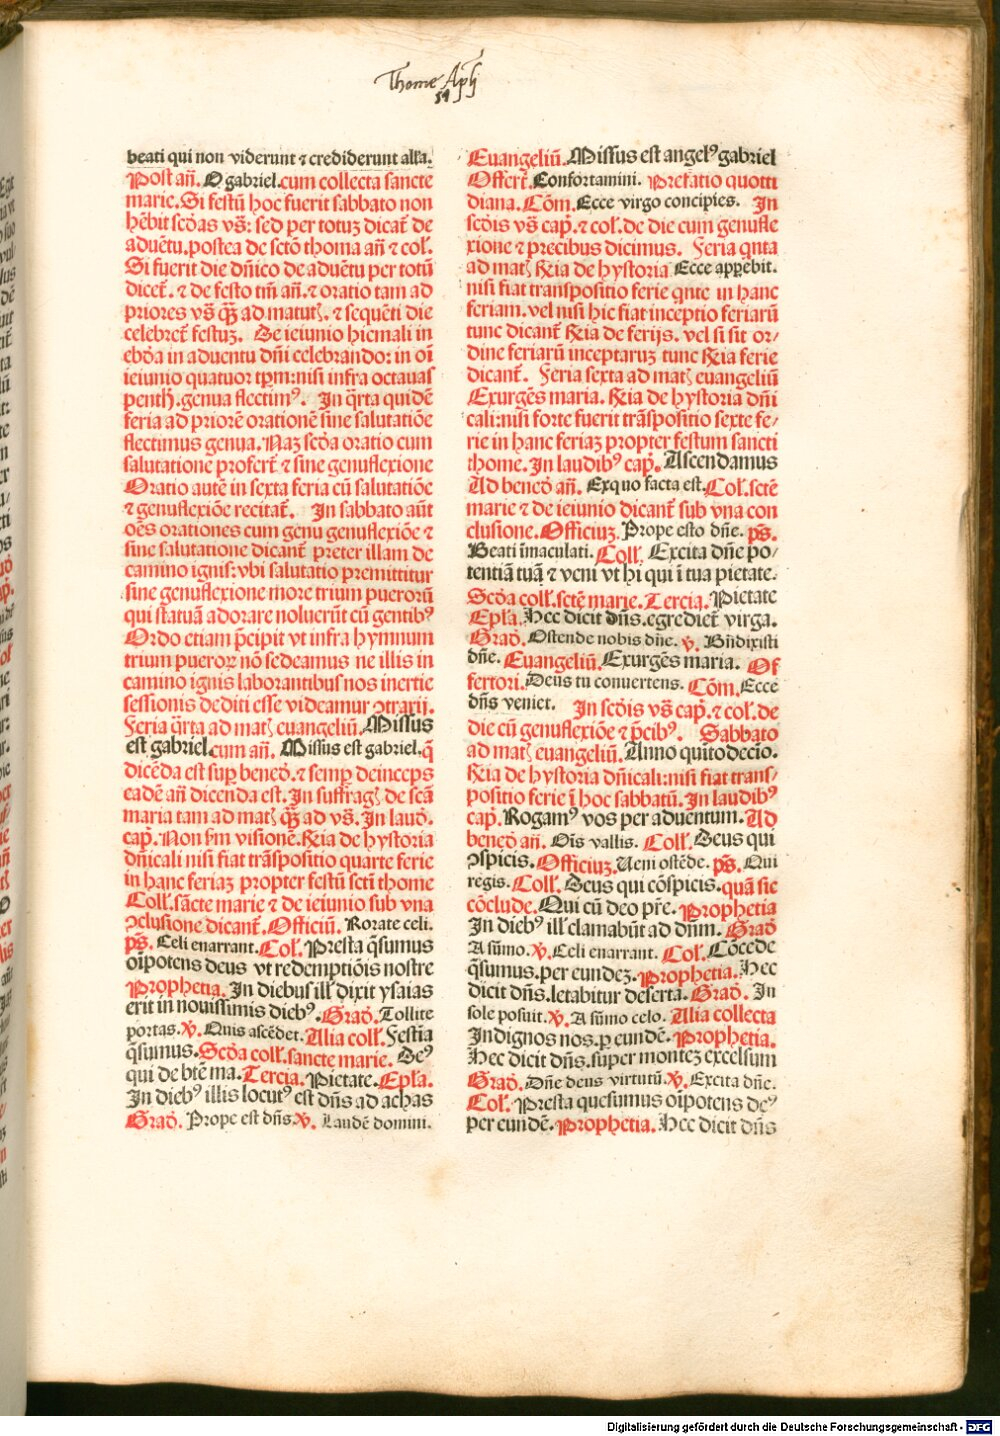 Thome Apłi
51
beati qui non viderunt ⁊ crediderunt alła.
Post añ. O gabriel.cum collecta sancte
marie. Si festũ hoc fuerit sabbato non
hēbit scðas vs̃: sed per totuʒ dicat̃ de
aduētu.postea de sctõ thoma añ ⁊ col̃.
Si fuerit die dñico de aduētu per totũ
dicet̃. ⁊ de festo tm̃ añ.⁊ oratio tam ad
priores vs̃ q̃ʒ ad matutꝭ. ⁊ sequēti die
celebret̃ festuʒ. De ieiunio hiemali in
ebða in aduentu dñi celebrando: in oī
ieiunio quatuor tꝑm:nisi infra octauas
penth̃.genua flectimꝰ. In q̃rta quidē
feria ad priorē orationē sine salutatiõe
flectimus genua. Naʒ scða oratio cum
salutatione profert̃ ⁊ sine genuflexione
Oratio autē in sexta feria cũ salutatiõe
⁊ genuflexiõe recitat̃. In sabbato aũt
oēs orationes cum genu genuflexiõe ⁊
sine salutatione dicant̃ preter illam de
camino ignis:vbi salutatio premittitur
sine genuflexione more trium puerorũ
qui statuã adorare noluerũt cũ gentibꝰ
Ordo etiam p̃cipit vt infra hymnum
trium pueroꝝ nõ sedeamus ne illis in
camino ignis laborantibus nos inertie
sessionis dediti esse videamur ꝯtrarij.
Feria q̃rta ad matꝭ euangeliũ. Missus
est gabriel.cum añ. Missus est gabriel.q̃
dicēda est suꝑ beneð.⁊ semꝑ deinceps
eadē añ dicenda est. In suffragꝭ de scã
maria tam ad matꝭ q̃ʒ ad vs̃. In lauð.
cap̃. Non s̃m visionē. ꝶia de hystoria
dñicali nisi fiat trãspositio quarte ferie
in hanc feriaʒ propter festũ scti thome
Coll̃. sãcte marie ⁊ de ieiunio sub vna
ꝯclusione dicant̃. Officiũ. Rorate celi.
ps̃. Celi enarrant. Col̃. Presta q̃sumus
oīpotens deus vt redemptiõis nostre
Prophetia. In diebus ill̃ dixit ysaias
erit in nouissimis diebꝰ. Grað. Tollite
portas. ꝟ. Quis ascēdet. Alia coll̃. Festia
q̃sumus. Scða coll̃.sancte marie. Deꝰ
qui de btē ma. Tercia. Pietate. Epła.
In diebꝰ illis locutꝰ est dñs ad achas
Grað. Prope est dñs ꝟ. Laudē domini.
Euangeliũ. Missus est angelꝰ gabriel
Offert̃. Confortamini. Prefatio quotti
diana. Cõm. Ecce virgo concipies. In
scðis vs̃ cap̃.⁊ col̃.de die cum genufle
xione ⁊ precibus dicimus. Feria qnta
ad matꝭ ꝶia de hystoria Ecce apꝑebit.
nisi fiat transpositio ferie qnte in hanc
feriam.vel nisi hic fiat inceptio feriarũ
tunc dicant̃ ꝶia de ferijs. vel si sit or⸗
dine feriarũ inceptaruʒ tunc ꝶia ferie
dicant̃. Feria sexta ad matꝭ euangeliũ
Exurgēs maria. ꝶia de hystoria dñi
cali:nisi forte fuerit trãspositio sexte fe⸗
rie in hanc feriaʒ propter festum sancti
thome. In laudibꝰ cap̃. Ascendamus
Ad beneð añ. Ex quo facta est. Col̃.sctē
marie ⁊ de ieiunio dicant̃ sub vna con
clusione. Officiuʒ. Prope esto dñe. ps̃.
Beati īmaculati. Coll̃. Excita dñe po⸗
tentiã tuã ⁊ veni vt hi qui ī tua pietate.
Scða coll̃.sctē marie. Tercia. Pietate
Epła. Hec dicit dñs.egrediet̃ virga.
Grað. Ostende nobis dñe. ꝟ. Bñdixisti
dñe. Euangeliũ. Exurgēs maria. Of
fertori. Deus tu conuertens. Cõm. Ecce
dñs veniet. In scðis vs̃ cap̃.⁊ col̃.de
die cũ genuflexiõe ⁊ p̃cibꝰ. Sabbato
ad matꝭ euangeliũ. Anno quītodecīo.
ꝶia de hystoria dñicali:nisi fiat trans⸗
positio ferie ī hoc sabbatũ. In laudibꝰ
cap̃. Rogamꝰ vos per aduentum. Ad
beneð añ. Oīs vallis. Coll̃. Deus qui
ꝯspicis. Officiuʒ. Ueni ostēde. ps̃. Qui
regis. Coll̃. Deus qui cõspicis.quã sic
cõclude. Qui cũ deo pr̃e. Prophetia
In diebꝰ ill̃ clamabũt ad dñm. Grað
A sũmo. ꝟ. Celi enarrant. Col̃. Cõcede
q̃sumus.per eundeʒ. Prophetia. Hec
dicit dñs.letabitur deserta. Grað. In
sole posuit. ꝟ. A sũmo celo. Alia collecta
Indignos nos.ꝑ eundē. Prophetia.
Hec dicit dñs.super monteʒ excelsum
Grað. Dñe deus virtutũ. ꝟ. Excita dñe.
Col̃. Presta quesumus oīpotens deꝰ
per eundē. Prophetia. Hec dicit dñs
Digitalisierung gefördert durch die Deutsche Forschungsgemeinschaft - DFG